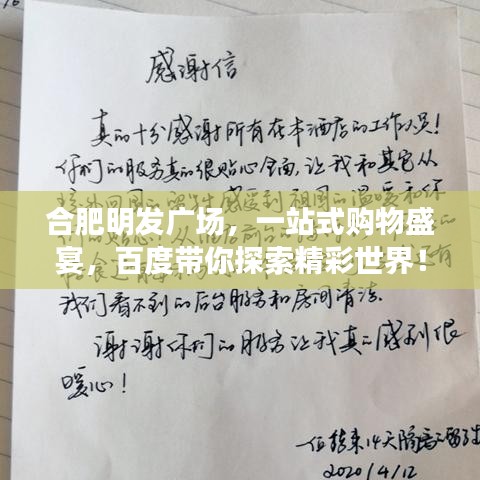 感谢信
真的十分感谢所有在本酒店的工作人员！
你们的服务真的很贴心全面，让我和其它从
感受到祖国的温暖和你
合肥明发广场，一站式购物盛
宴，百度带你探索精彩世界！
我们看不到的后台服务和房间清洁。
谢谢你们的服务让我真的感到很
暖心！
一位结束14天隔离的留学生
2020/4/12